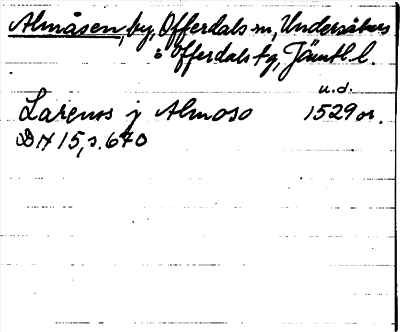 Almåsen, by, Offerdals sn, Undersåkers
o Offerdals tg, Jämtl. l.
u.d.
Larenss j Almoso 1529 or.
DN 15, s. 670